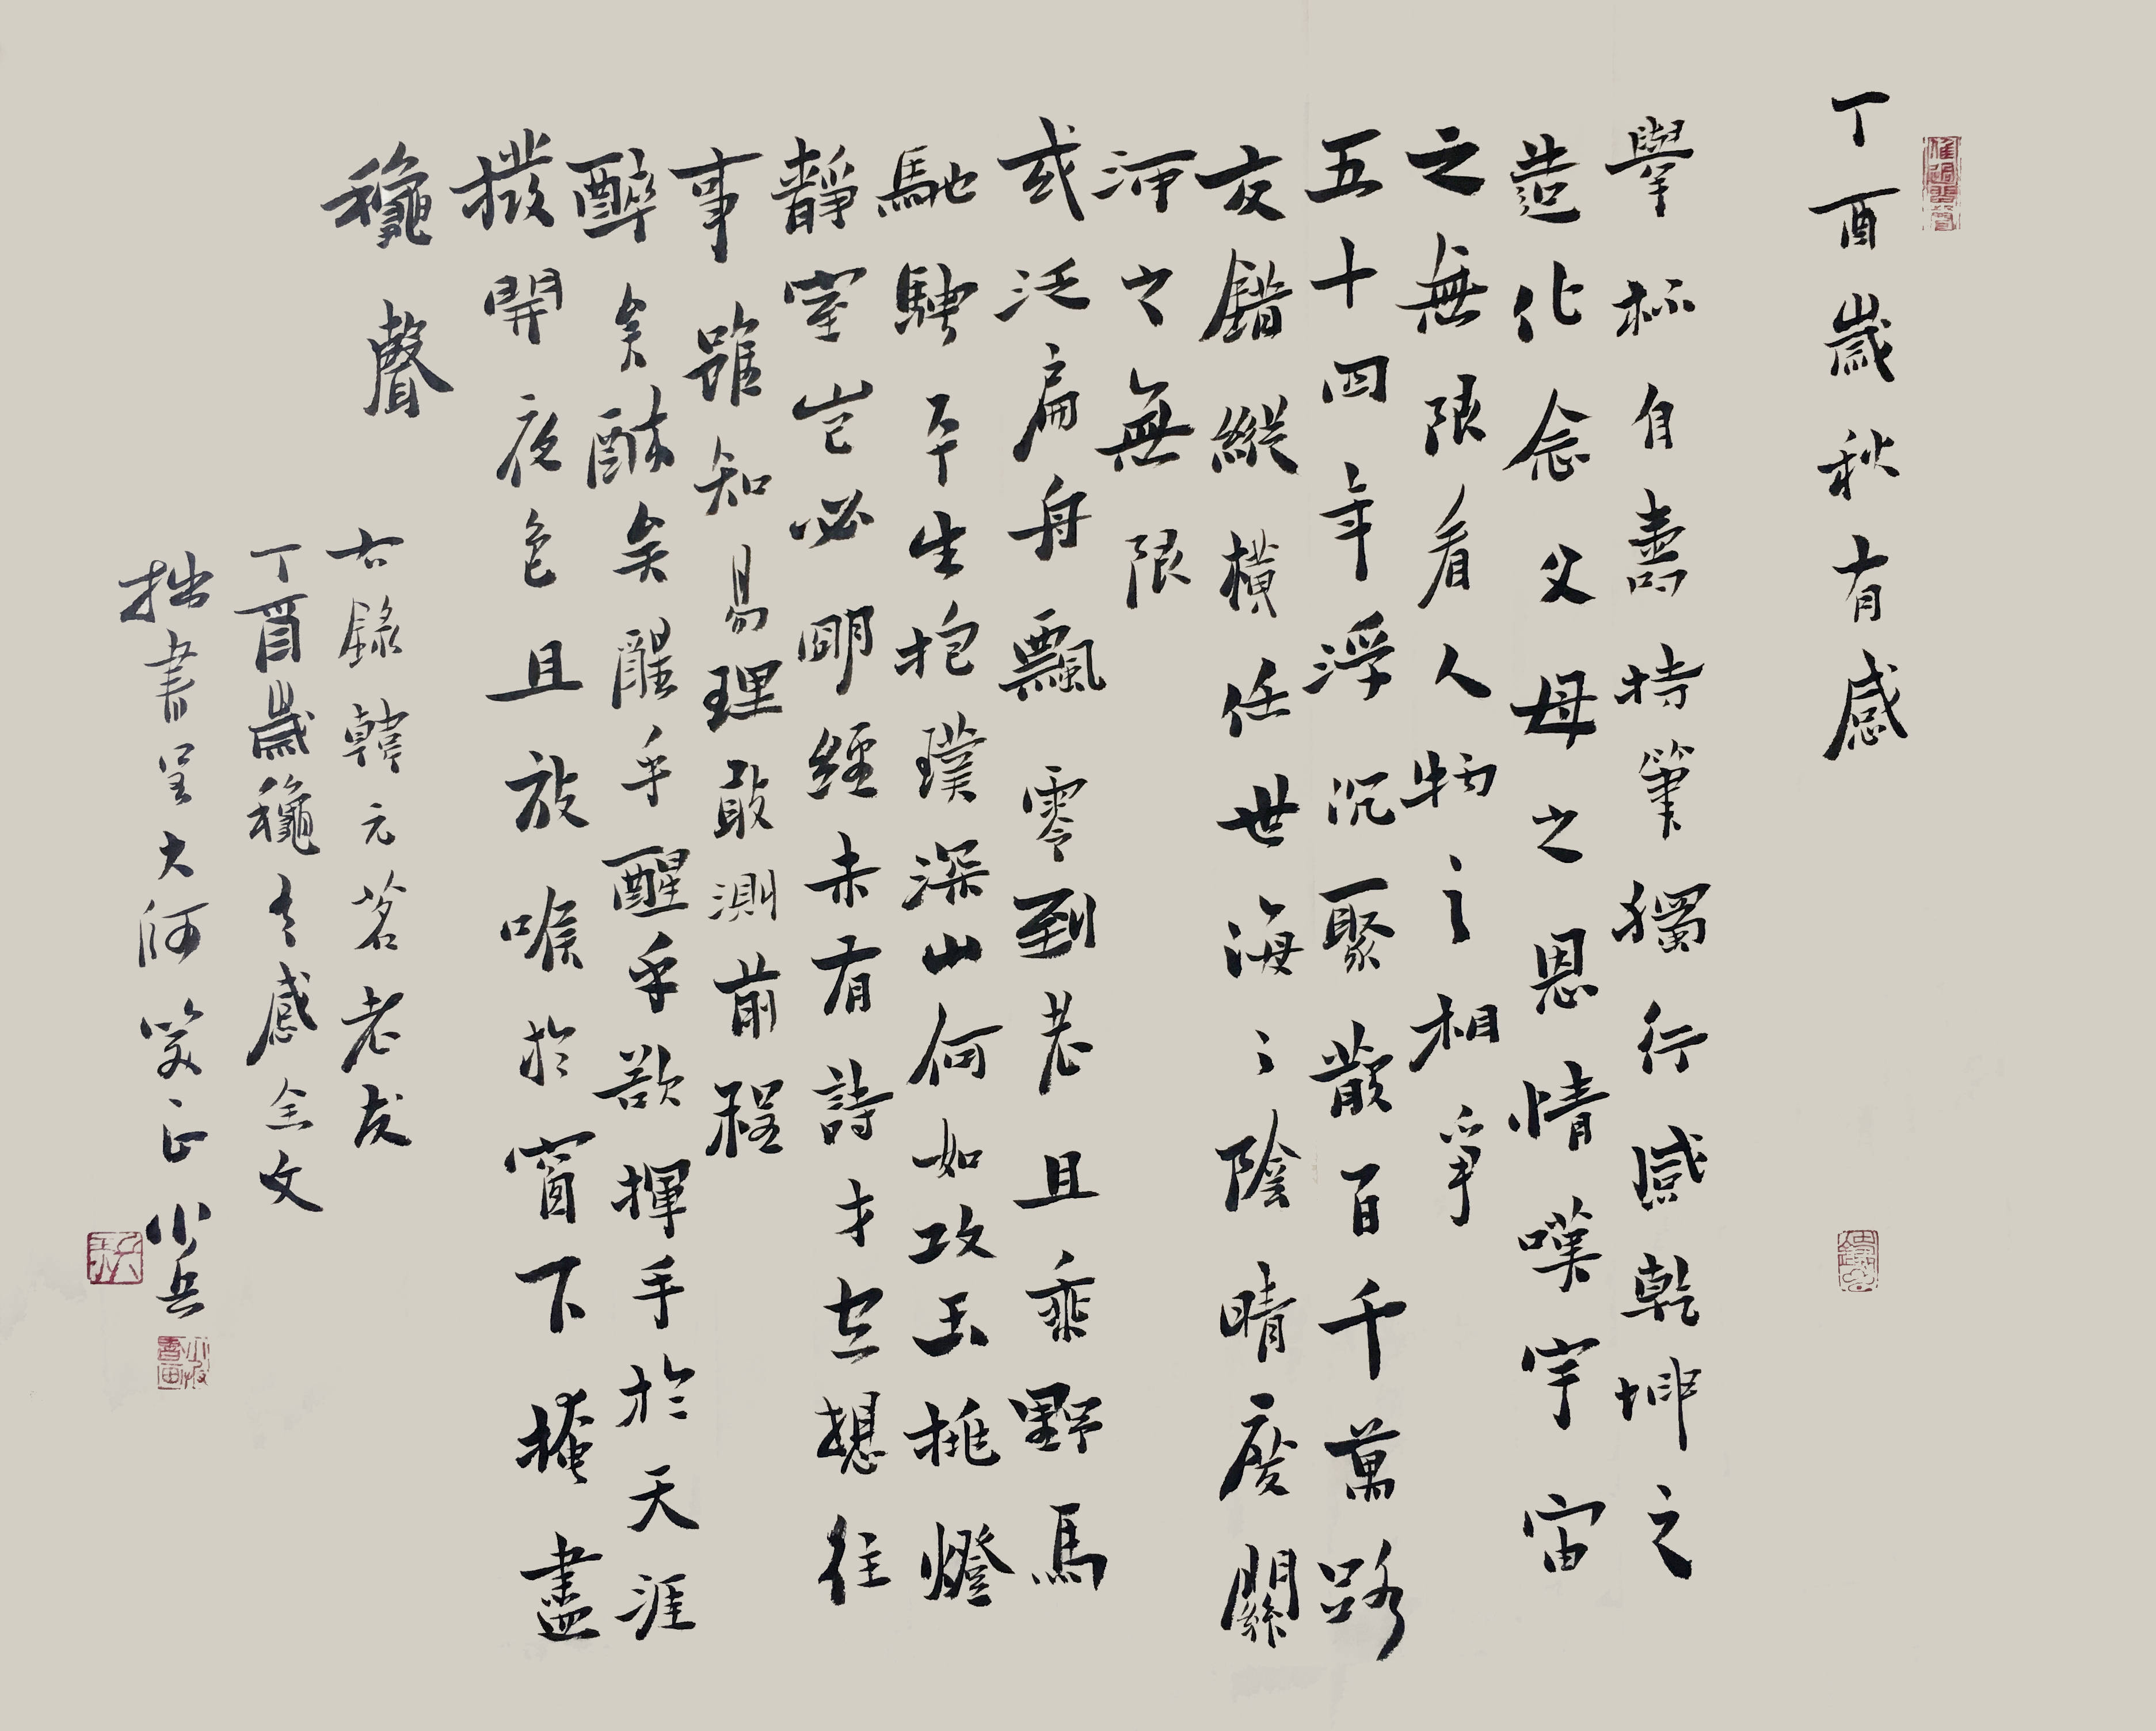 丁酉歲秋有感
舉杯自壽持筆獨行感乾坤之
造化念父母之恩情嘆宇宙
之無限看人物之相爭
五十四年浮沉聚散百千萬路
交錯縱橫任世海之陰晴度關
河之無限
或泛扁舟飄零到老且乘野馬
馳騁平生抱璞深山何如攻玉挑燈
靜室豈必明經未有詩才空想往
事雖知易理敢測前程
醉矣醉矣醒乎醒乎欲揮手於天涯
撥開夜色且放喉於窗下掩盡
龝聲
右錄韓元茗老友
丁酉歲龝有感全文
拙書呈大阿笑正 小兵